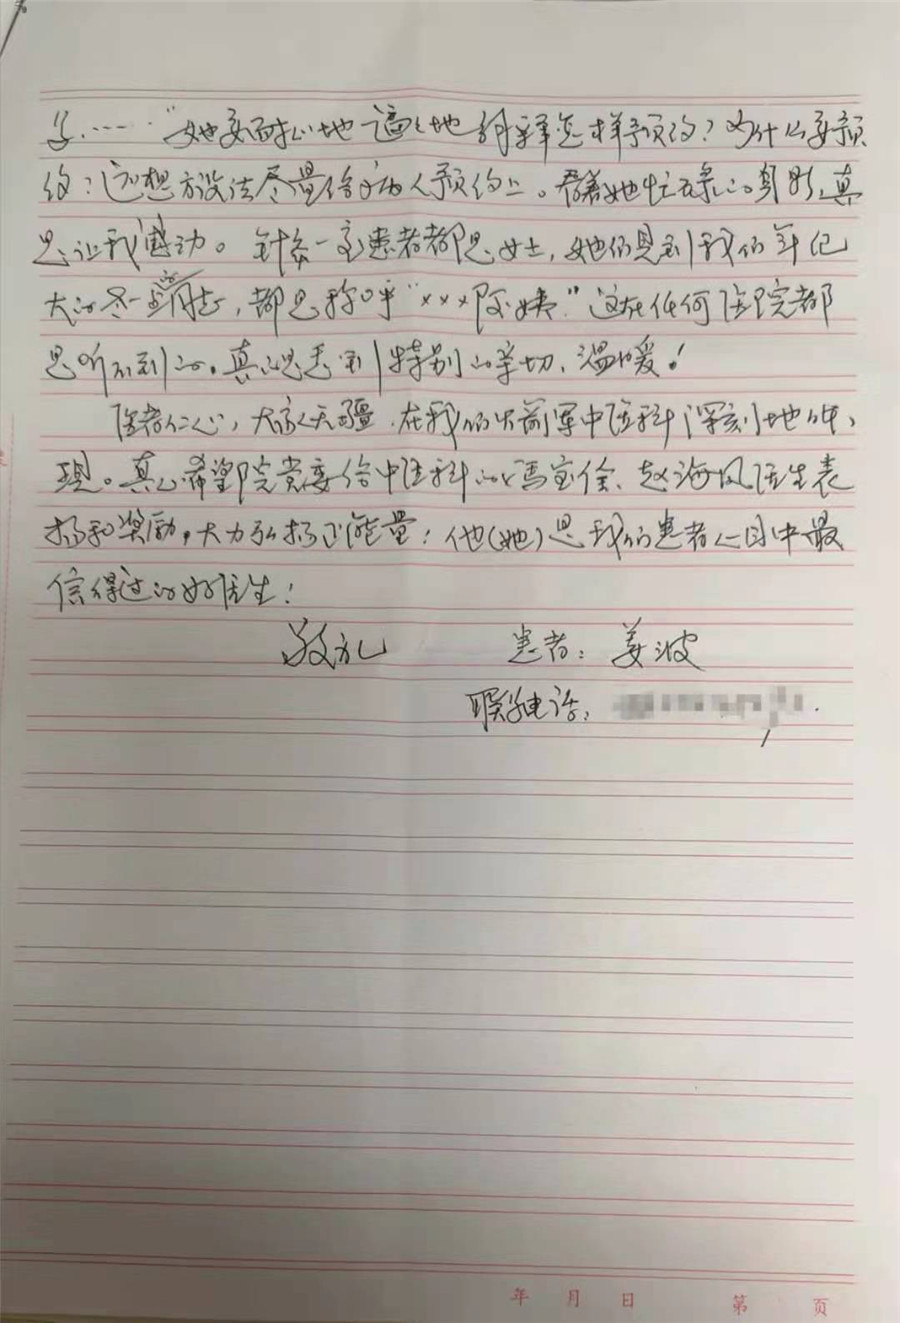 ……"她要耐心地一遍遍地解释怎样预约？为什么要预
约？还想方设法尽量给病人预约上。看着她忙碌的身影，真
是让我感动。针灸一室患者都是女士，她们见到我们年纪
大的，都是称呼"×××阿姨"这在任何医院都
是听不到的。真的是感到特别的亲切、温暖！
医者仁心，大爱无疆，在我们火箭军中医科深刻地体
现。真心希望院党委给中医科的冯宝徐、赵海凤医生表
扬和奖励，大力弘扬正能量！他(她)是我们患者心目中最
信得过的好医生！
敬礼 患者：姜波
联系电话：
年 月 日 第 页